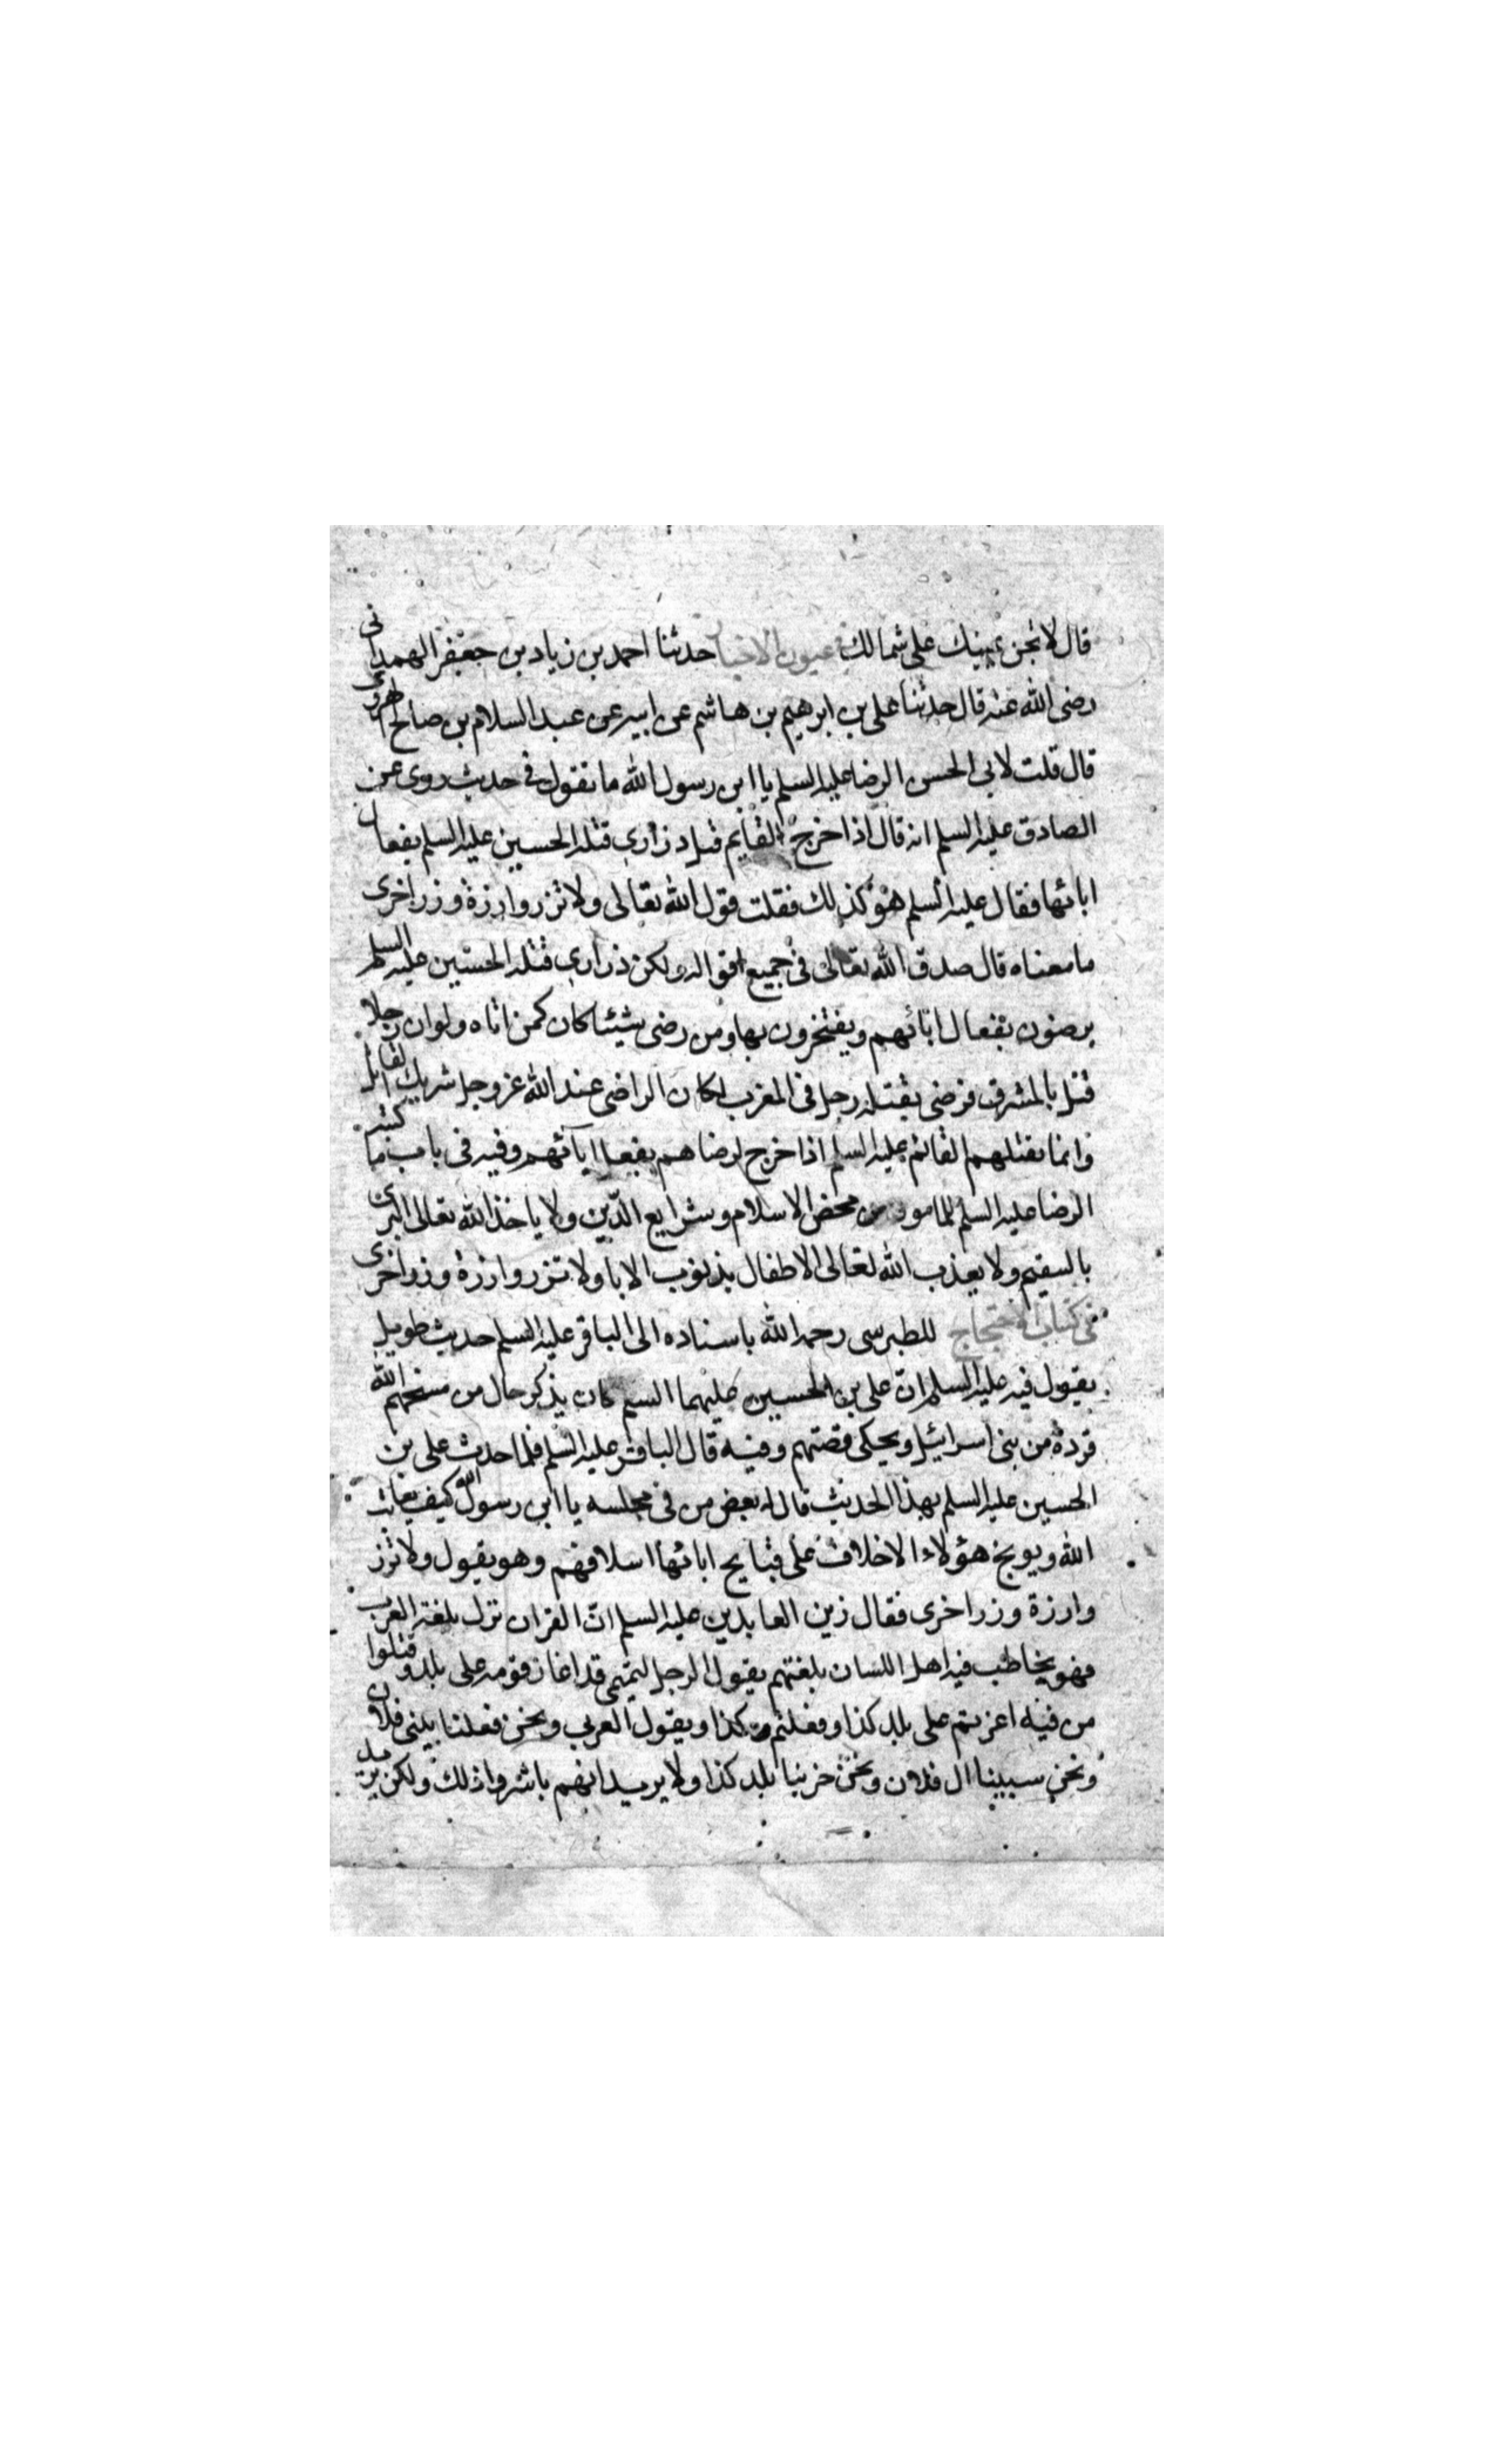 قال لا تجن يمينك على شمالك فى عيون الاخبار حدثنا احمد بن زياد بن جعفر الهمدانى
رضى الله عنه قال حدثنا على بن ابرهيم بن هاشم عن ابيه عن عبد السلام بن صالح الهروى
قال قلت لابى الحسن الرضا عليه السلم يا ابن رسول الله ما تقول فى حديث روى عن
الصادق عليه السلم انه قال اذا خرج القايم قتل ذرارى قتلة الحسين عليه السلم بفعال
ابائها فقال عليه السلم هو كذلك فقلت قول الله تعالى ولا تزر وازرة وزر اخرى
ما معناه قال صدق الله تعالى فى جميع اقواله ولكن ذرارى قتلة الحسين عليه السلم
يرضون بفعال ابائهم ويفتخرون بها ومن رضى شيئا كان كمن اتاه ولو ان رجلا
قتل بالمشرق فرضى بقتله رجل فى المغرب لكان الراضى عند الله عز وجل شريك القاتل
وانما يقتلهم القائم عليه السلم اذا خرج لرضاهم بفعل ابآئهم وفيه فى باب ما كتبه
الرضا عليه السلم للمامون من محض الاسلام وشرايع الدين ولا ياخذ الله تعالى البرى
بالسقيم ولا يعذب الله تعالى الاطفال بذنوب الابا ولا تزر وازرة وزر اخرى
فى كتاب الاحتجاج للطبرسى رحمه الله باسناده الى الباقر عليه السلم حديث طويل
يقول فيه عليه السلم ان على بن الحسين عليهما السلم كان يذكر حال من مسخهم الله
قردة من بنى اسرائيل ويحكى قصتهم وفيه قال الباقر عليه السلم فلما حدث على بن
الحسين عليه السلم بهذا الحديث قال له بعض من فى مجلسه يا ابن رسول الله كيف يعاتب
الله ويوبخ هؤلاء الاخلاف على قبايح اباتها اسلافهم وهو يقول ولا تزر
وازرة وزر اخرى فقال زين العابدين عليه السلم ان القران نزل بلغة العرب
فهو يخاطب فيه اهل اللسان بلغتهم يقول الرجل لتميمى قد اغار قومه على بلد وقتلوا
من فيه اغرتم على بلد كذا وفعلتم كذا ويقول العربى ونحن فعلنا ببنى فلان
ونحن سبينا ال فلان ونحن خربنا بلد كذا ولا يريد انهم باشروا ذلك ولكن يريد